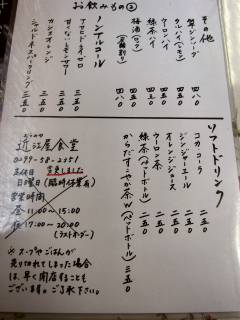 お飲みもの②
その他
翠ジンソーダ 四五〇
タルハイ(レモン)
ウーロンハイ 四八〇
緑茶ハイ 四八〇
梅酒(ロック)
ノンアルコール
アサヒドライゼロ 三五〇
甘くないレモンサワー 三五〇
カシスオレンジ 三五〇
ソフトドリンク
コカコーラ 二五〇
ジンジャーエール 二五〇
オレンジジュース 二五〇
ウーロン茶 二五〇
緑茶(ペットボトル) 二五〇
からだすこやか茶W(ペットボトル) 三五〇
近江屋食堂
定休日
日曜日(臨時休業有)
変更しました
営業時間
昼 11:00〜15:00
夜 17:00〜20:00
(ラストオーダー)
※スープやごはんが
売り切れてしまった場合
は、早く閉店することも
ございます。ご了承下さい。